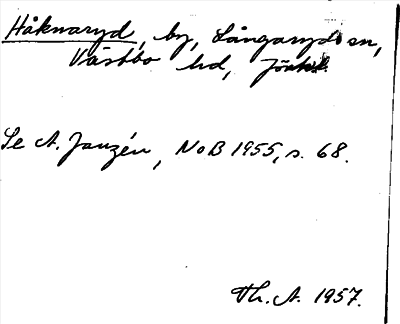 Håknaryd, by, Långaryds sn,
Västbo hd,
Se A. Janzén, NoB 1955, s. 68.
Th. A. 1957.